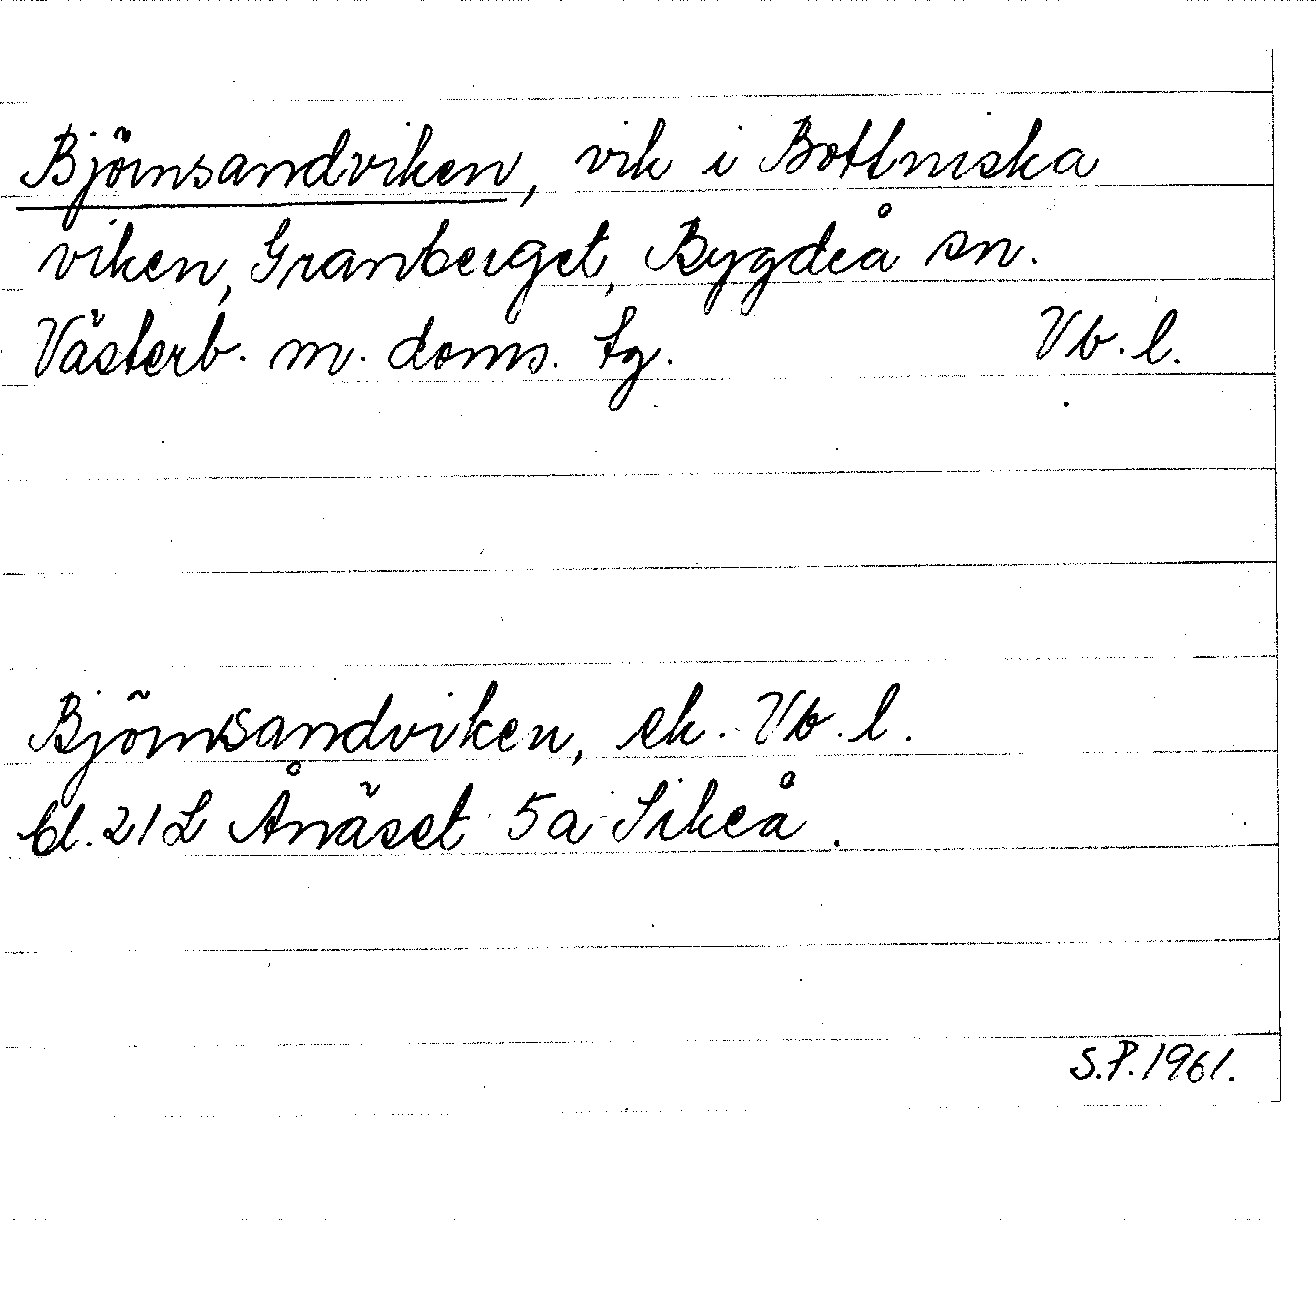 Björnsandviken, vik i Bottniska
viken, Granberget, Bygdeå sn.
Västerb. m. doms. tg. Vb. l.
Björnsandviken, ek. Vb. l.
bl. 21L Ånäset 5a Sikeå.
S.P. 1961.